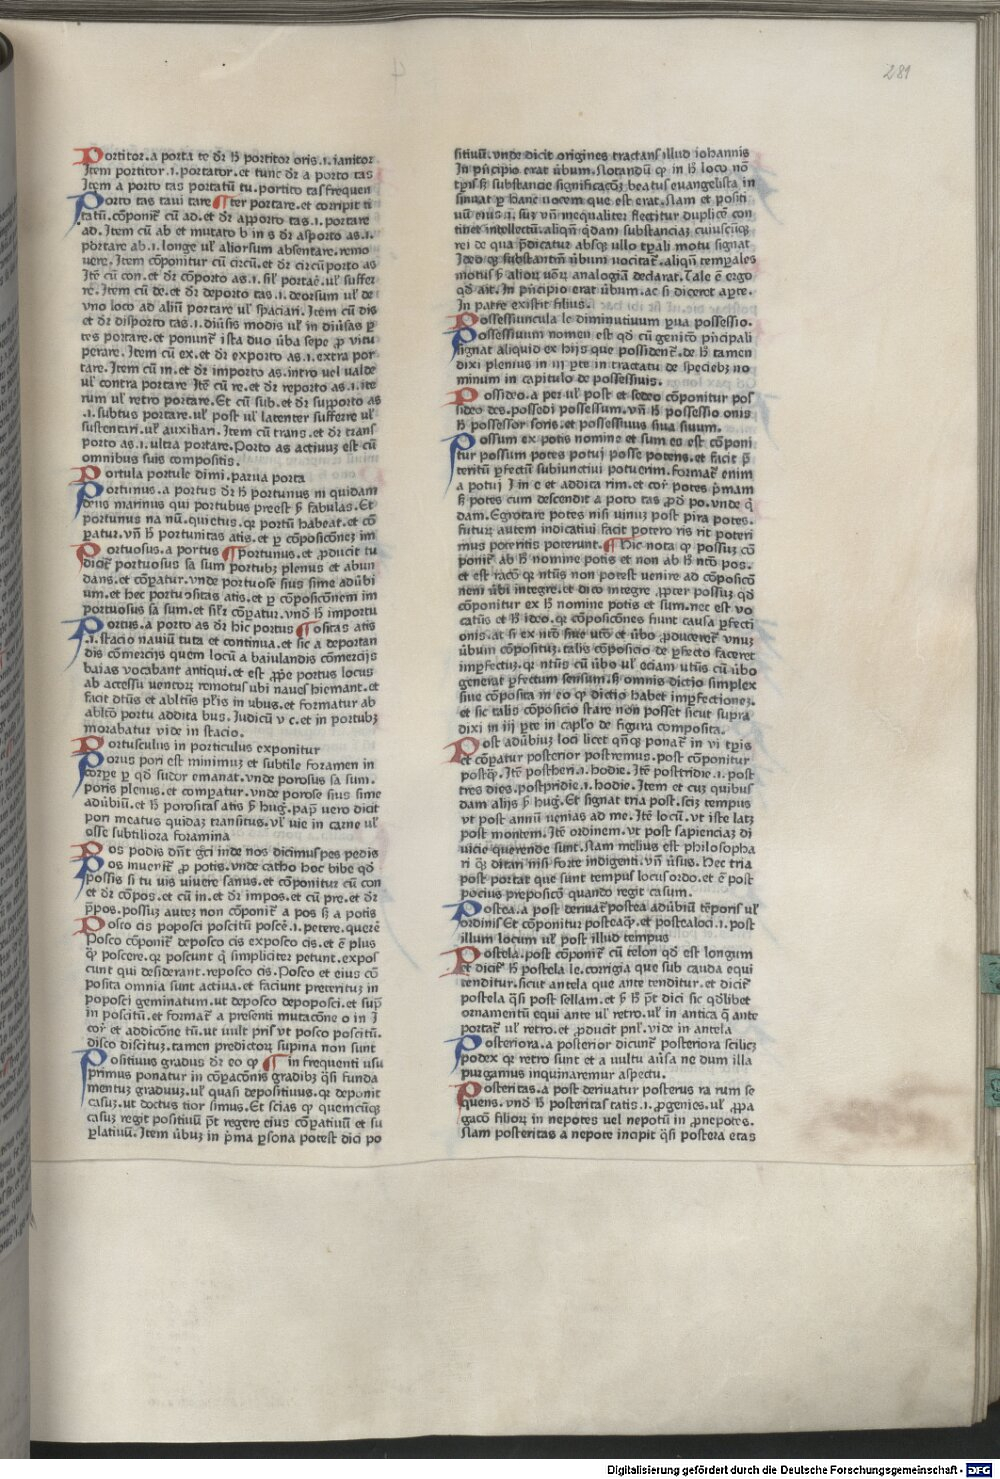 281
Portitor.a porta te dr̄ h̄ portitor oris.i.ianitor
Item portitor.i.portator.et tunc dr̄ a porto tas
Item a porto tas portatū tu.portito tas frequen
Porto tas taui tare ¶ ter portare.et corripit ti
tatū.cōponit᷑ cū ad.et dr̄ apporto tas.i.portare
ad.Item cū ab et mutato b in s dr̄ asporto as.i.
portare ab.i.longe ul᷑ aliorsum absentare.remo
uere.Item cōponitur cū circū.et dr̄ circūporto as
Itē cū con.et dr̄ cōporto as.i.sil᷑ portaē.ul᷑ suffer
re.Item cū de.et dr̄ deporto tas.i.deorsum ul᷑ de
vno loco ad aliū portare ul᷑ spaciari.Item cū dis
et dr̄ disporto tas.i.diūsis modis ul᷑ in diūsas ꝑ
tes portare.et ponunt᷑ ista duo ūba sepe ꝓ vitu
perare.Item cū ex.et dr̄ exporto as.i.extra por
tare.Item cū in.et dr̄ importo as.intro uel ualde
ul᷑ contra portare Itē cū re.et dr̄ reporto as.i.ite
rum ul᷑ retro portare.Et cū sub.et dr̄ supporto as
.i.subtus portare.ul᷑ post ul᷑ latenter sufferre ul᷑
sustentari.ul᷑ auxiliari.Item cū trans.et dr̄ trans
porto as.i.ultra portare.Porto as actiuuȝ est cū
omnibus suis compositis.
Portula portule dimi.parua porta
Portunus.a portus dr̄ h̄ portunus ni quidam
deus marinus qui portubus preest ẜ fabulas.Et
portunus na nū.quietus.qꝛ portū habeat.et cō
ꝑatur.vn̄ h̄ portunitas atis.et ꝑ cōposicōneȝ im
Portuosus.a portus ¶ portunus.et ꝓducit tu
dicit᷑ portuosus sa sum portubȝ plenus et abun
dans.et cōꝑatur.vnde portuose sius sime adūbi
um.et hec portuositas atis.et ꝑ cōposicōnem im
portuosus sa sum.et silꝛ cōꝑatur.vnd̄ h̄ importu
Portus.a porto as dr̄ hic portus ¶ ositas atis
.i.stacio nauiū tuta et continua.et sic a deportan
dis cōmercijs quem locū a baiulandis cōmercijs
baias vocabant antiqui.et est ꝓpe portus locus
ab accessu uentoꝝ remotus ubi naues hiemant.et
facit dtūs et abltūs pl᷑is in ubus.et formatur ab
abltō portu addita bus.Iudicū v c.et in portubȝ
morabatur vide in stacio.
Portusculus in porticulus exponitur
Porus pori est minimuȝ et subtile foramen in
corꝑe ꝑ qd̄ sudor emanat.vnde porosus sa sum.
poris plenus.et comparatur.vnde porose sius sime
adūbiū.et h̄ porositas atis ẜ hug̉.pap᷑ uero dicit
pori meatus quidaȝ transitus.ul᷑ vie in carne ul᷑
osse subtiliora foramina
Pos podis dn̄t gᷓci inde nos dicimus pes pedis
Pos inuenit᷑ ꝓ potis.vnde catho hoc bibe qd̄
possis si tu uis viuere sanus.et cōponitur cū con
et dr̄ cōpos.et cū in.et dr̄ impos.et cū pre.et dr̄
p̄pos.possuȝ auteȝ non cōponit᷑ a pos ẜ a potis
Posco cis poposci poscitū poscē.i.petere.querē
Posco cōponit᷑ deposco cis exposco cis.et ē plus
ꝙ poscere.qꝛ poscunt q̄ simpliciter petunt.expos
cunt qui desiderant.reposco cis.Posco et eius cō
posita omnia sunt actiua.et faciunt preteritus in
poposci geminatum.ut deposco depoposci.et sup̄
in poscitū.et format᷑ a presenti mutacōne o in I
cor᷑ et addicōne tū.ut uult pris᷑ vt posco poscitū.
disco discituȝ.tamen predictoꝝ supina non sunt
Positiuus gradus dr̄ eo ꝙ ¶ in frequenti usu
primus ponatur in cōꝑacōnis gradibȝ q̄si funda
mentuȝ graduuȝ.ul᷑ quasi depositiuus.qꝛ deponit
casuȝ.ut doctus tior simus.Et scias ꝙ quemcūqȝ
casuȝ regit positiuū p̄t regere eius cōꝑatiuū et su
ꝑlatiuū.Item ūbuȝ in p̄ma ꝑsona potest dici po
sitiuū.vnde dicit origines tractans illud iohannis
In p̄ncipio erat ūbum.Notandū ꝙ in h̄ loco nō
tꝑis ẜ substancie significacōȝ beatus euangelista in
sinuat ꝑ hanc uocem que est erat.Nam et positi
uū eius .i. suȝ vn̄ inequaliter flectitur duplicē con
tinet intellectū.aliqn̄ q̄dam substanciaȝ cuiuscūqȝ
rei de qua p̄dicatur absqȝ ullo tꝑali motu signat
Ideo qȝ substantiū ūbum uocitat᷑.aliqn̄ temꝑales
motus ẜ alioꝝ uoꝝ analogiā declarat.Tale ē ergo
qd̄ ait.In p̄ncipio erat ūbum.ac si diceret aꝑte.
In patre existit filius.
Possessiuncula le diminutiuum ꝑua possessio.
Possessiuum nomen est qd̄ cū genitō p̄ncipali
signat aliquid ex hijs que possident᷑.de h̄ tamen
dixi plenius in iij ꝑte in tractatu de speciebȝ no
minum in capitulo de possessiuis.
Possideo.a per ul᷑ post et sedeo cōponitur pos
sideo des.possedi possessum.vn̄ h̄ possessio onis
h̄ possessor soris.et possessiuus siua siuum.
Possum ex potis nomine et sum es est cōponi
tur possum potes potuj posse potens.et facit p̄
teritū ꝑfectū subiunctiui potuerim.format᷑ enim
a potuj I in e et addita rim.et cor᷑ potes p̄mam
ẜ potes cum descendit a poto tas ꝓd̄ po.vnde q̄
dam.Egrotare potes nisi uinuȝ post pira potes.
futuꝝ autem indicatiui facit potero ris rit poteri
mus poteritis poterunt.¶ Hic nota ꝙ possuȝ cō
ponit᷑ ab h̄ nomine potis et non ab h̄ nōtō pos.
et est racō qꝛ ntūs non potest uenire ad cōposicō
nem ūbi integre.et dico integre ꝓpter possuȝ qd̄
cōponitur ex h̄ nomine potis et sum.nec est vo
catūs et h̄ ideo.qꝛ cōposicōnes fiunt causa ꝑfecti
onis.ac si ex ntō siue utō et ūbo ꝓduceret᷑ vnuȝ
ūbum cōpositum.talis cōposicio de ꝑfecto faceret
imꝑfectuȝ.qꝛ ntūs cū ūbo ul᷑ eciam utūs cū ūbo
generat ꝑfectum sensum.ẜ omnis dictio simplex
siue cōposita in eo ꝙ dictio habet imꝑfectioneȝ.
et sic talis cōposicio stare non posset sicut supra
dixi in iij ꝑte in capl᷑o de figura composita.
Post adūbiuȝ loci licet qn̄qȝ ponat᷑ in vi tꝑis
et cōꝑatur posterior postremus.post cōponitur
postꝙ.Itē postheri.i.hodie.Itē postridie.i.post
tres dies.postpridie.i.hodie.Item et cuȝ quibus
dam alijs ẜ hug̉.Et signat tria post.sciȝ tempus
vt post annū uenias ad me.Itē locū.vt iste latȝ
post montem.Itē ordinem.vt post sapienciaȝ di
uicie querende sunt.Nam melius est philosopha
ri qȝ ditari nisi forte indigenti.vn̄ ūsus.Hec tria
post portat que sunt tempus locus ordo.et ē post
pocius preposicō quando regit casum.
Postea.a post deriuat᷑ postea adūbiū tēporis ul᷑
ordinis Et cōponitur posteaꝙ.et postealoci.i.post
illum locum ul᷑ post illud tempus
Postela.post cōponit᷑ cū telon qd̄ est longum
et dicit᷑ h̄ postela le.corrigia que sub cauda equi
tenditur.sicut antela que ante tenditur.et dicit᷑
postela q̄si post sellam.et ẜ h̄ p̄t dici sic qd̄libet
ornamentū equi ante ul᷑ retro.ul᷑ in antica q̄ ante
portat᷑ ul᷑ retro.et ꝓducit pnl᷑.vide in antela
Posteriora.a posterior dicunt᷑ posteriora scilicȝ
podex qꝛ retro sunt et a uultu aūsa ne dum illa
purgamus inquinaremur aspectu.
Posteritas.a post deriuatur posterus ra rum se
quens.vnd̄ h̄ posteritas tatis.i.ꝓgenies.ul᷑ ꝓpa
gacō filioꝝ in nepotes uel nepotū in ꝓnepotes.
Nam posteritas a nepote incipit q̄si postera etas
Digitalisierung gefördert durch die Deutsche Forschungsgemeinschaft - DFG